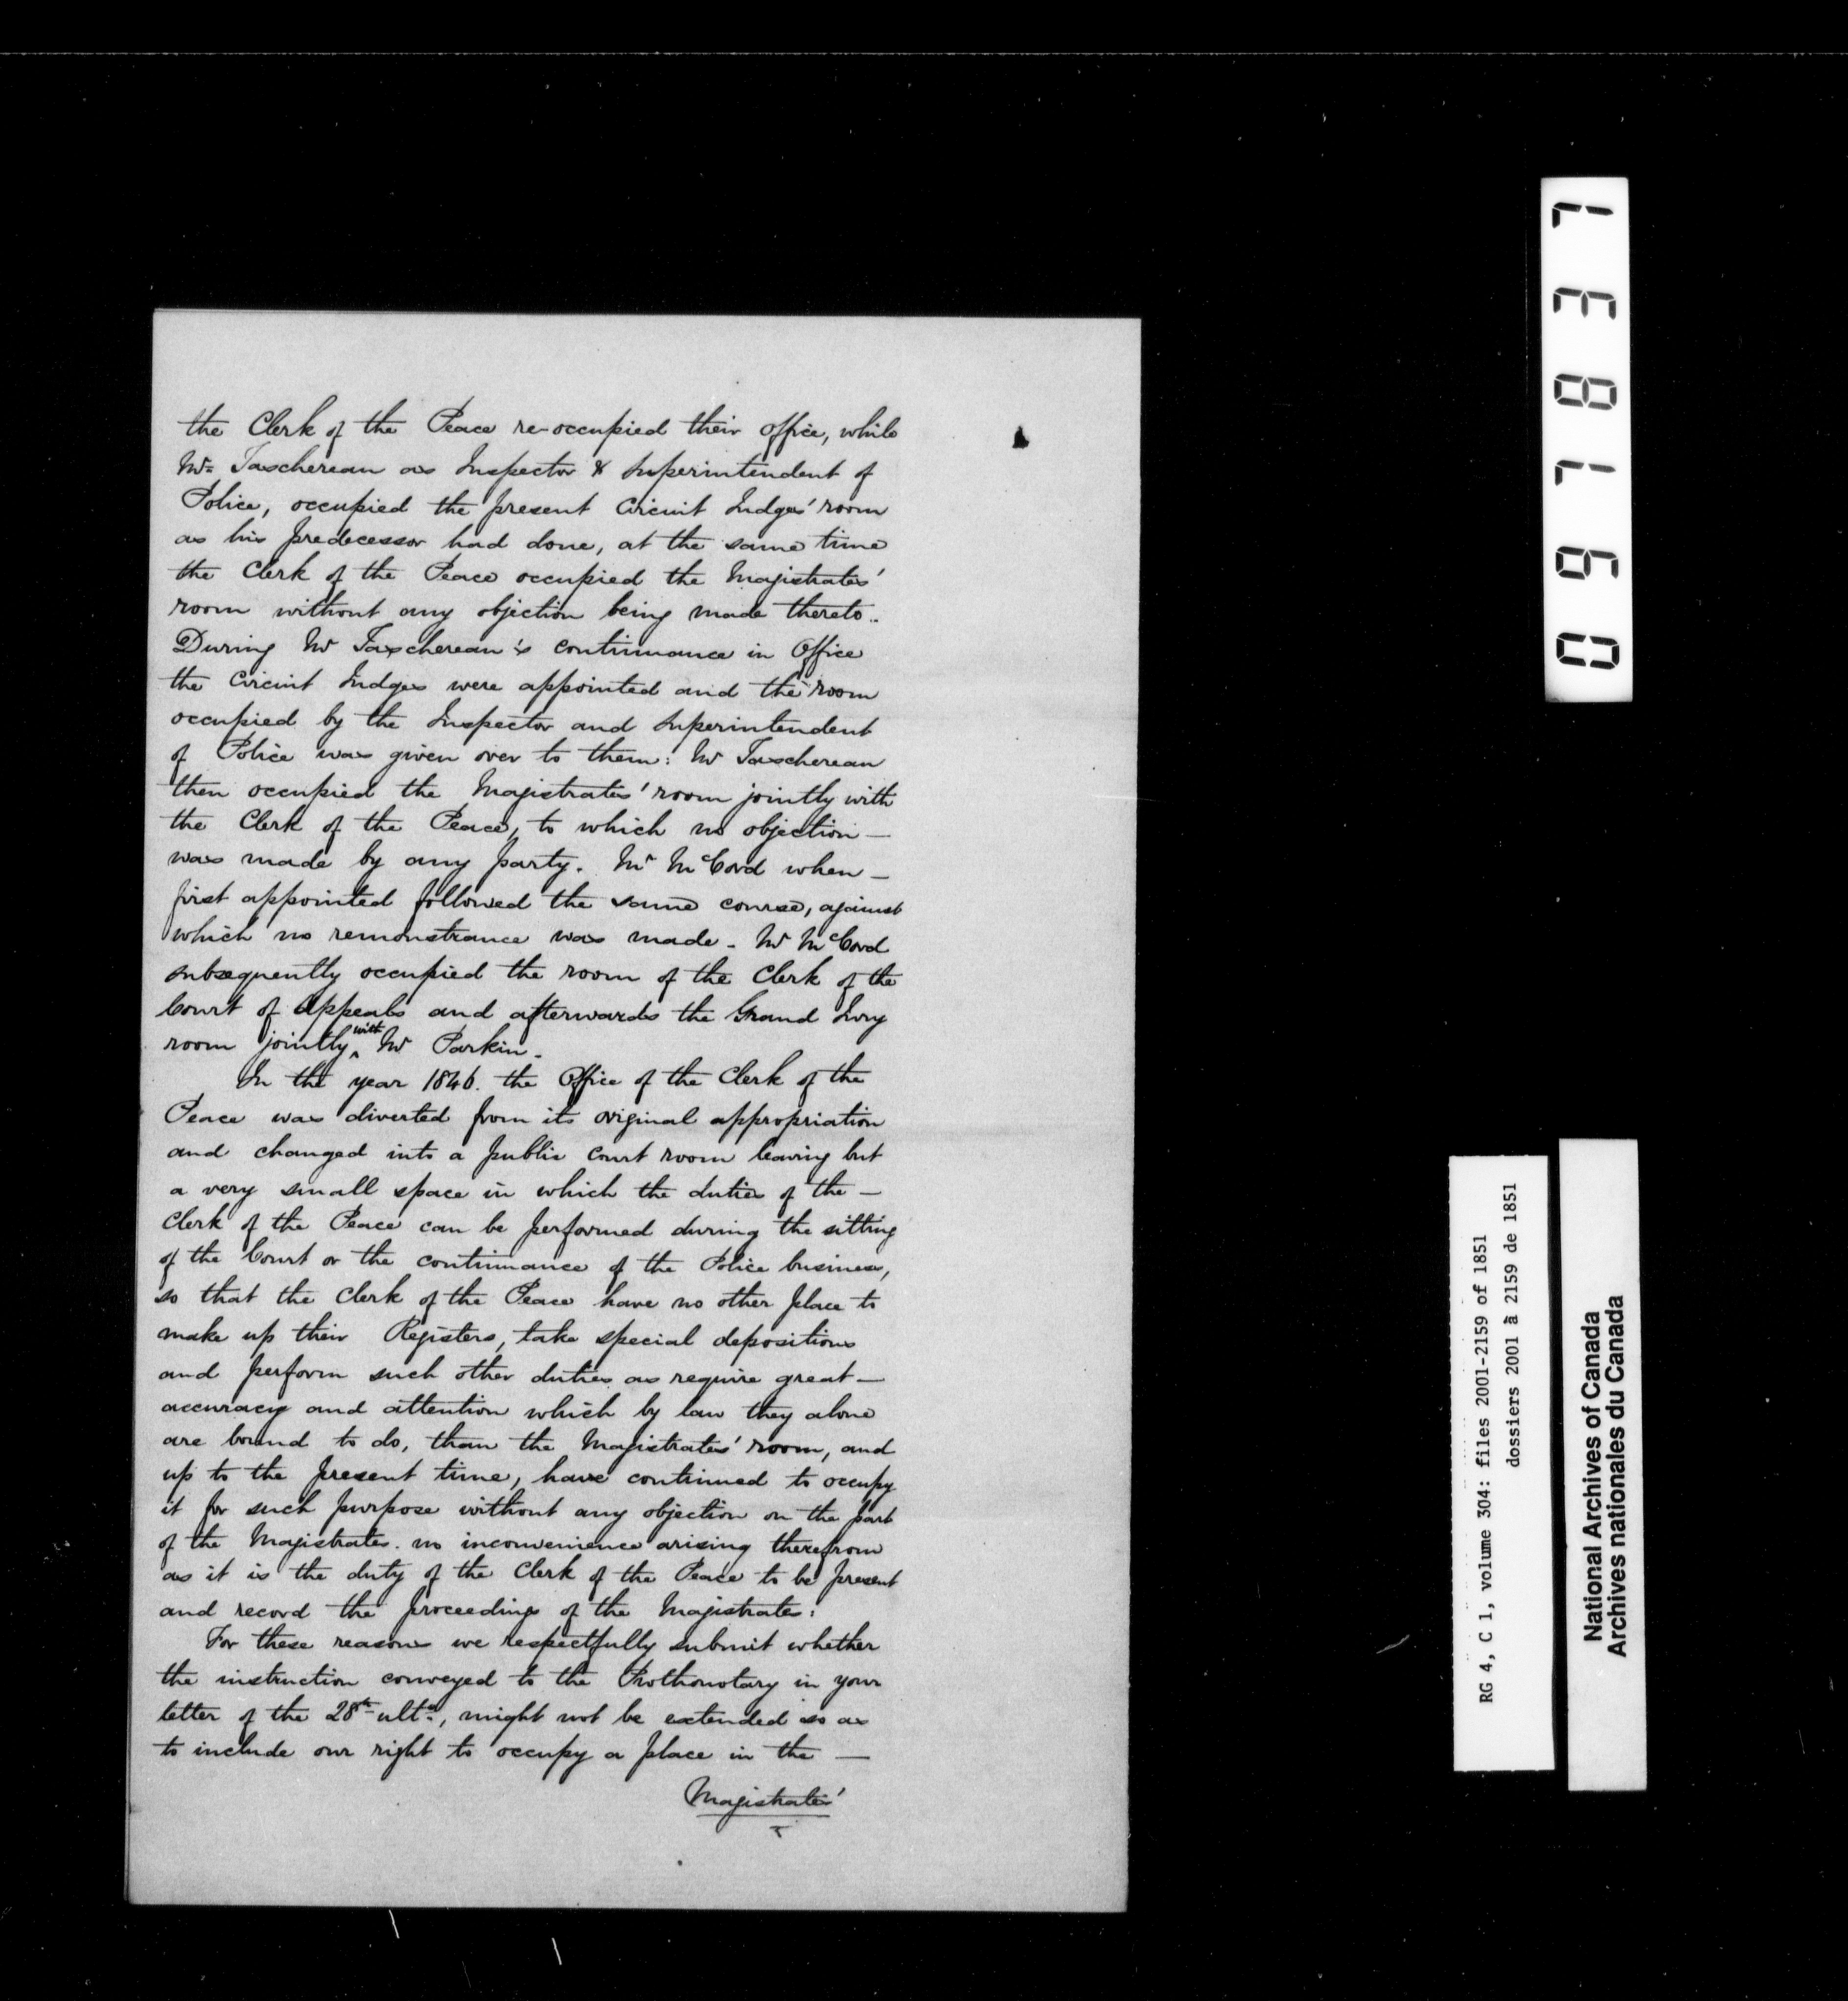 the Clerk of the Peace re-occupied their office, while
Mr. Taschereau as Inspector & Superintendent of
Police, occupied the present Circuit Judges' room
as his predecessor had done, at the same time
the Clerk of the Peace occupied the Magistrates'
room without any objection being made thereto.
During Mr Taschereau's continuance in Office
the Circuit Judges were appointed and the room
occupied by the Inspector and Superintendent
of Police was given over to them: Mr Taschereau
then occupied the Magistrates' room jointly with
the Clerk of the Peace, to which no objection —
was made by any party. Mr McCord when —
first appointed followed the same course, against
which no remonstrance was made. Mr McCord
subsequently occupied the room of the Clerk of the
Court of Appeals and afterwards the Grand Jury
room jointly with Mr Parkin.
In the year 1846. the Office of the Clerk of the
Peace was diverted from its original appropriation
and changed into a public Court room leaving but
a very small space in which the duties of the —
Clerk of the Peace can be performed during the sitting
of the Court or the continuance of the Police business,
so that the Clerk of the Peace have no other place to
make up their Registers, take special depositions
and perform such other duties as require great —
accuracy and attention which by law they alone
are bound to do, than the Magistrates' room, and
up to the present time, have continued to occupy
it for such purpose without any objection on the part
of the Magistrates. no inconvenience arising therefrom
as it is the duty of the Clerk of the Peace to be present
and record the proceedings of the Magistrates:
For these reasons we respectfully submit whether
the instruction conveyed to the Prothonotary in your
letter of the 28th ulto., might not be extended so as
to include our right to occupy a place in the —
Magistrates'
097837
RG 4, C 1, volume 304: files 2001-2159 of 1851
dossiers 2001 à 2159 de 1851
National Archives of Canada
Archives nationales du Canada